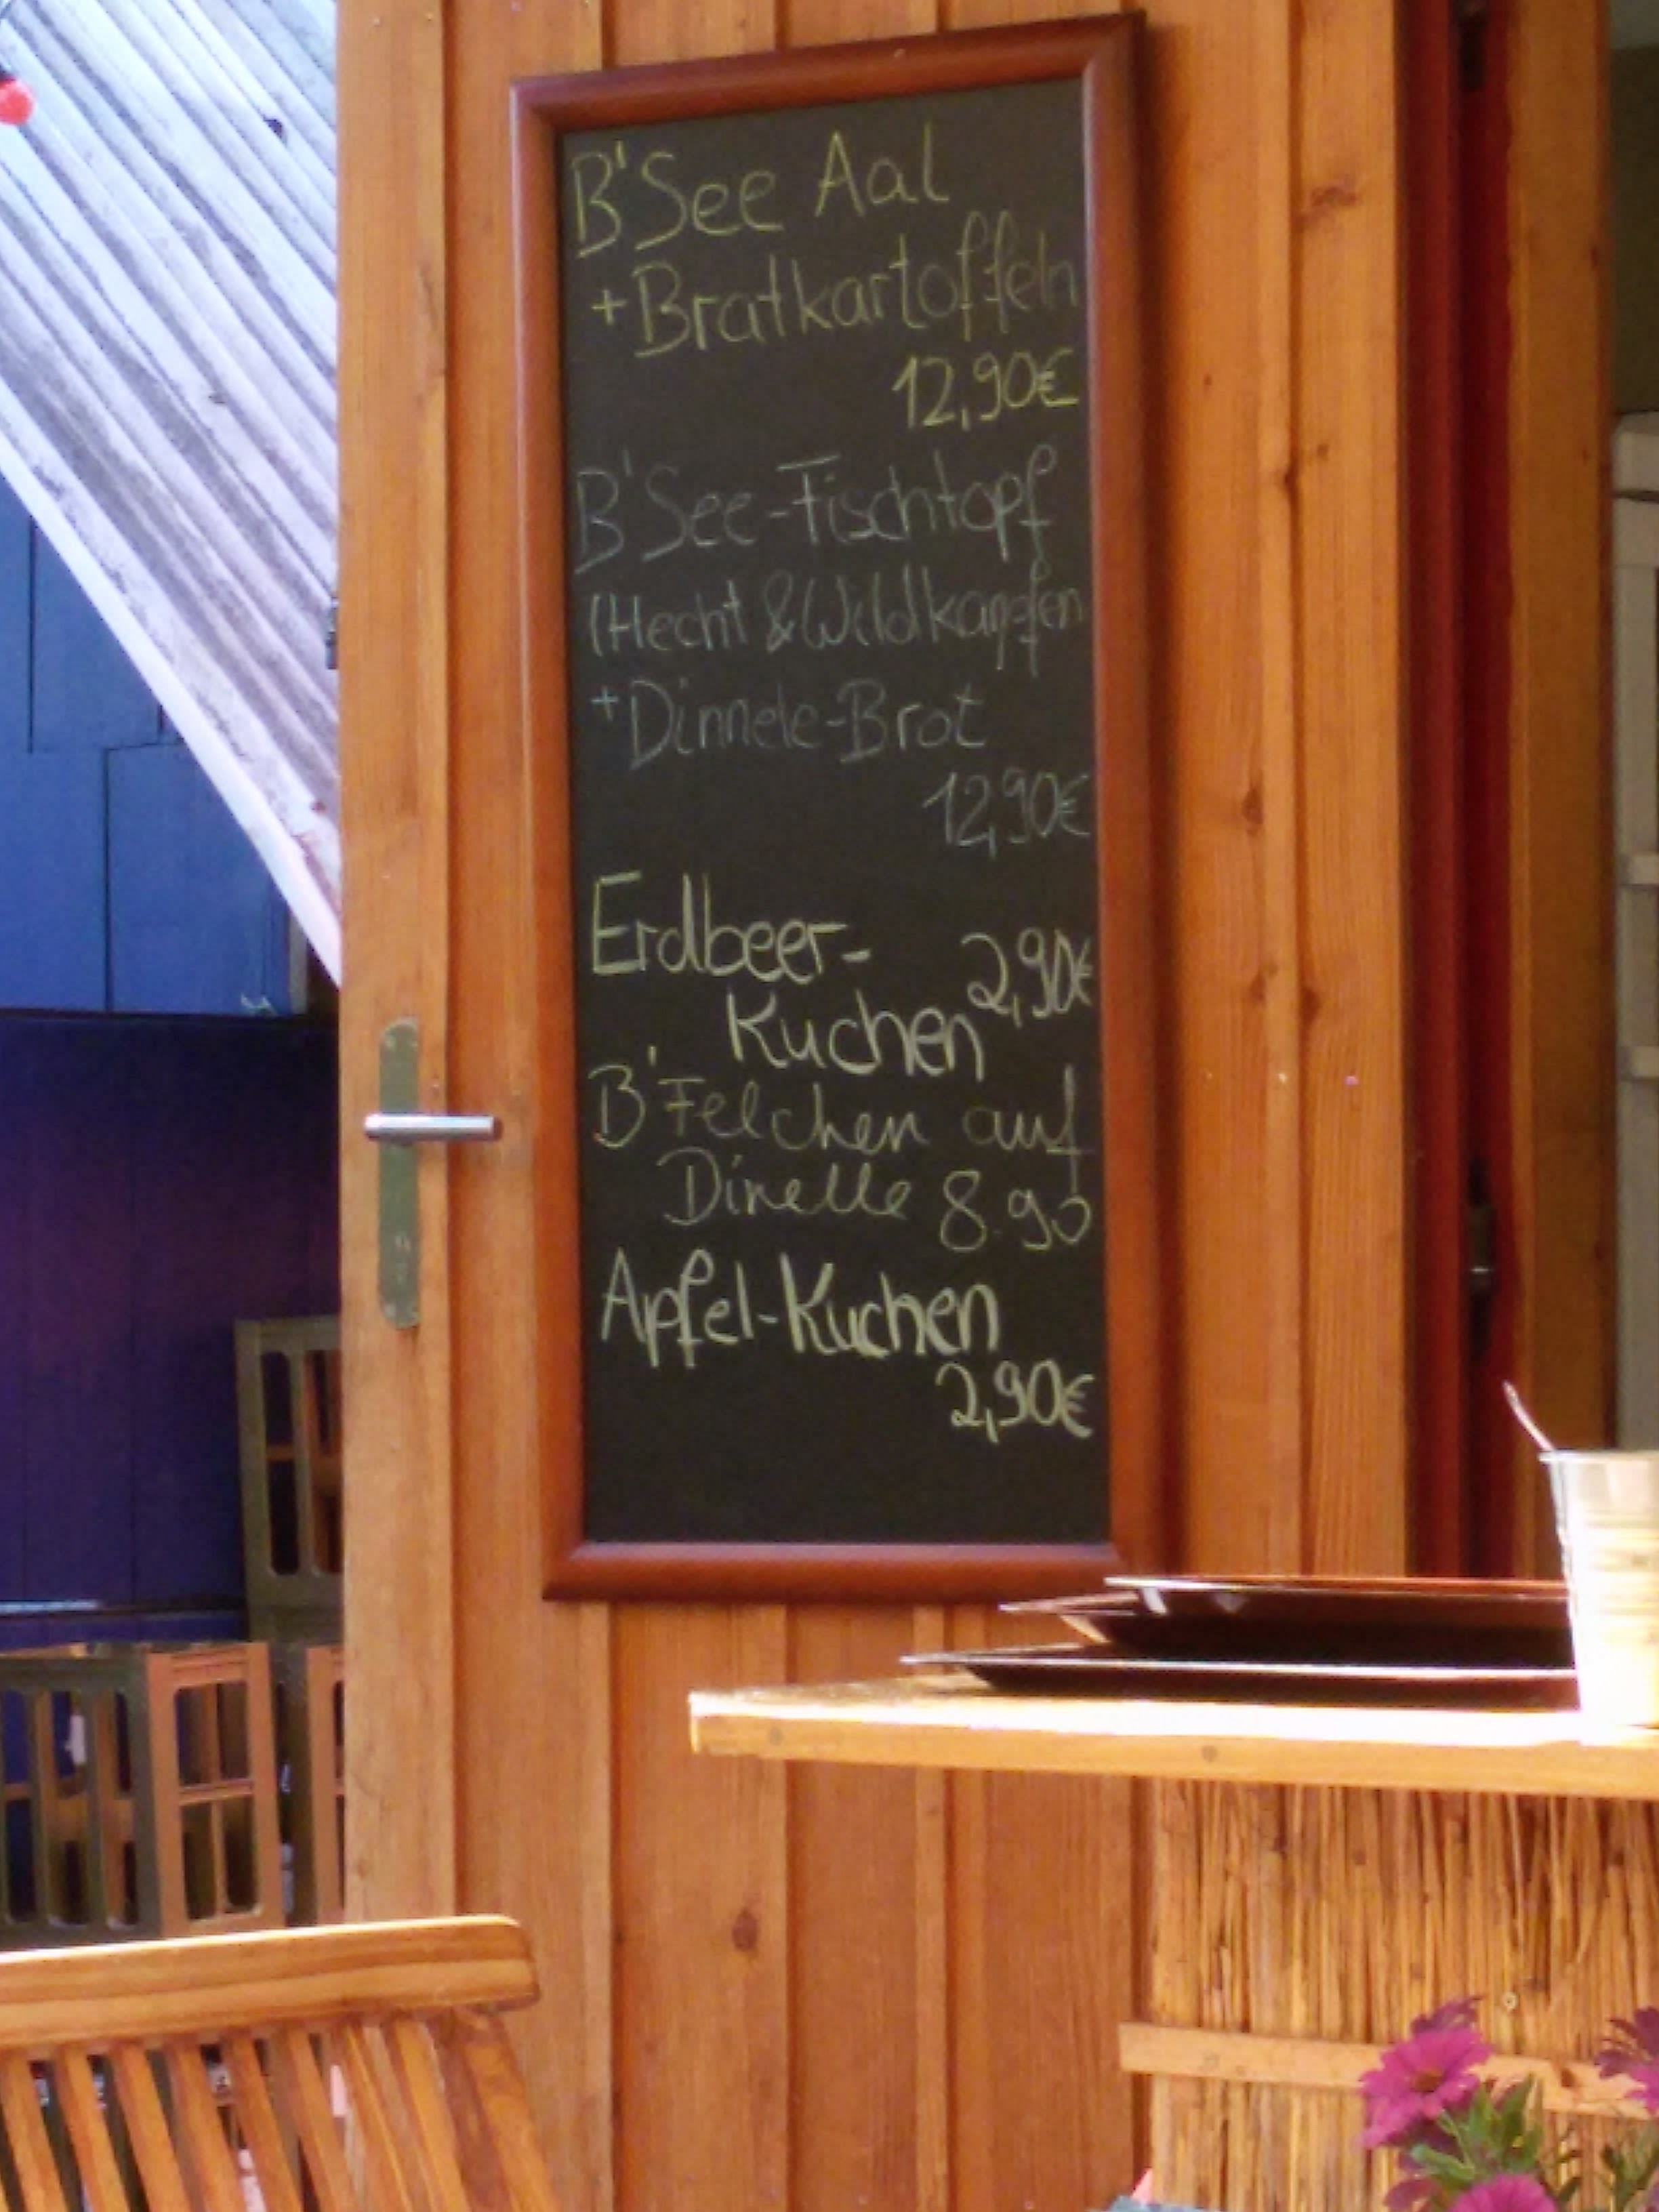 B'See Aal
+Bratkartoffeln
12,90€
B'See-Fischtopf
(Hecht & Wildkarpfen
+Dinnele-Brot
12,90€
Erdbeer-
Kuchen 2,90€
B'Felchen auf
Dinelle 8.90
Apfel-Kuchen
2,90€